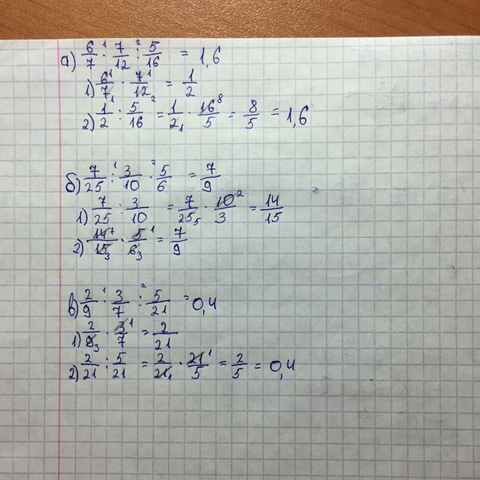 а) 6/7 · 7/12 : 5/16 = 1,6
1) 6/7 · 7/12 = 1/2
2) 1/2 : 5/16 = 1/2 · 16/5 = 8/5 = 1,6
б) 7/25 : 3/10 · 5/6 = 7/9
1) 7/25 : 3/10 = 7/25 · 10/3 = 14/15
2) 14/15 · 5/6 = 7/9
в) 2/9 · 3/7 : 5/21 = 0,4
1) 2/9 · 3/7 = 2/21
2) 2/21 : 5/21 = 2/21 · 21/5 = 2/5 = 0,4